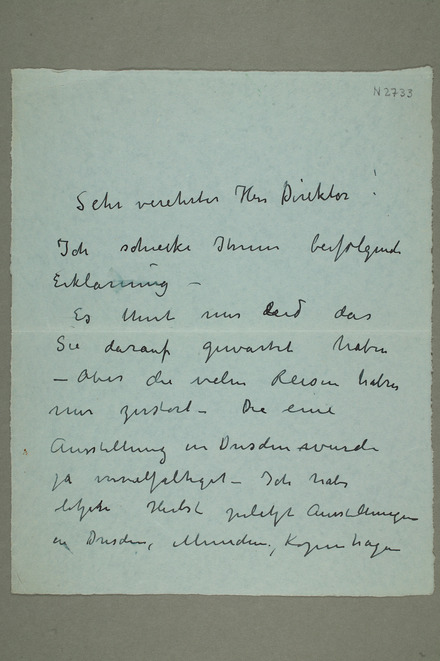 N2733
Sehr verehrter Herr Direktor!
Ich schicke Ihnen beifolgende
Erklärung –
Es thut mir leid das
Sie darauf gewartet haben
– Aber die vielen Reisen haben
mir zerstört – Die eine
Ausstellung in Dresden wurde
ja – Ich habe
letzten Herbst Ausstellungen
in Dresden, München, Kopenhagen